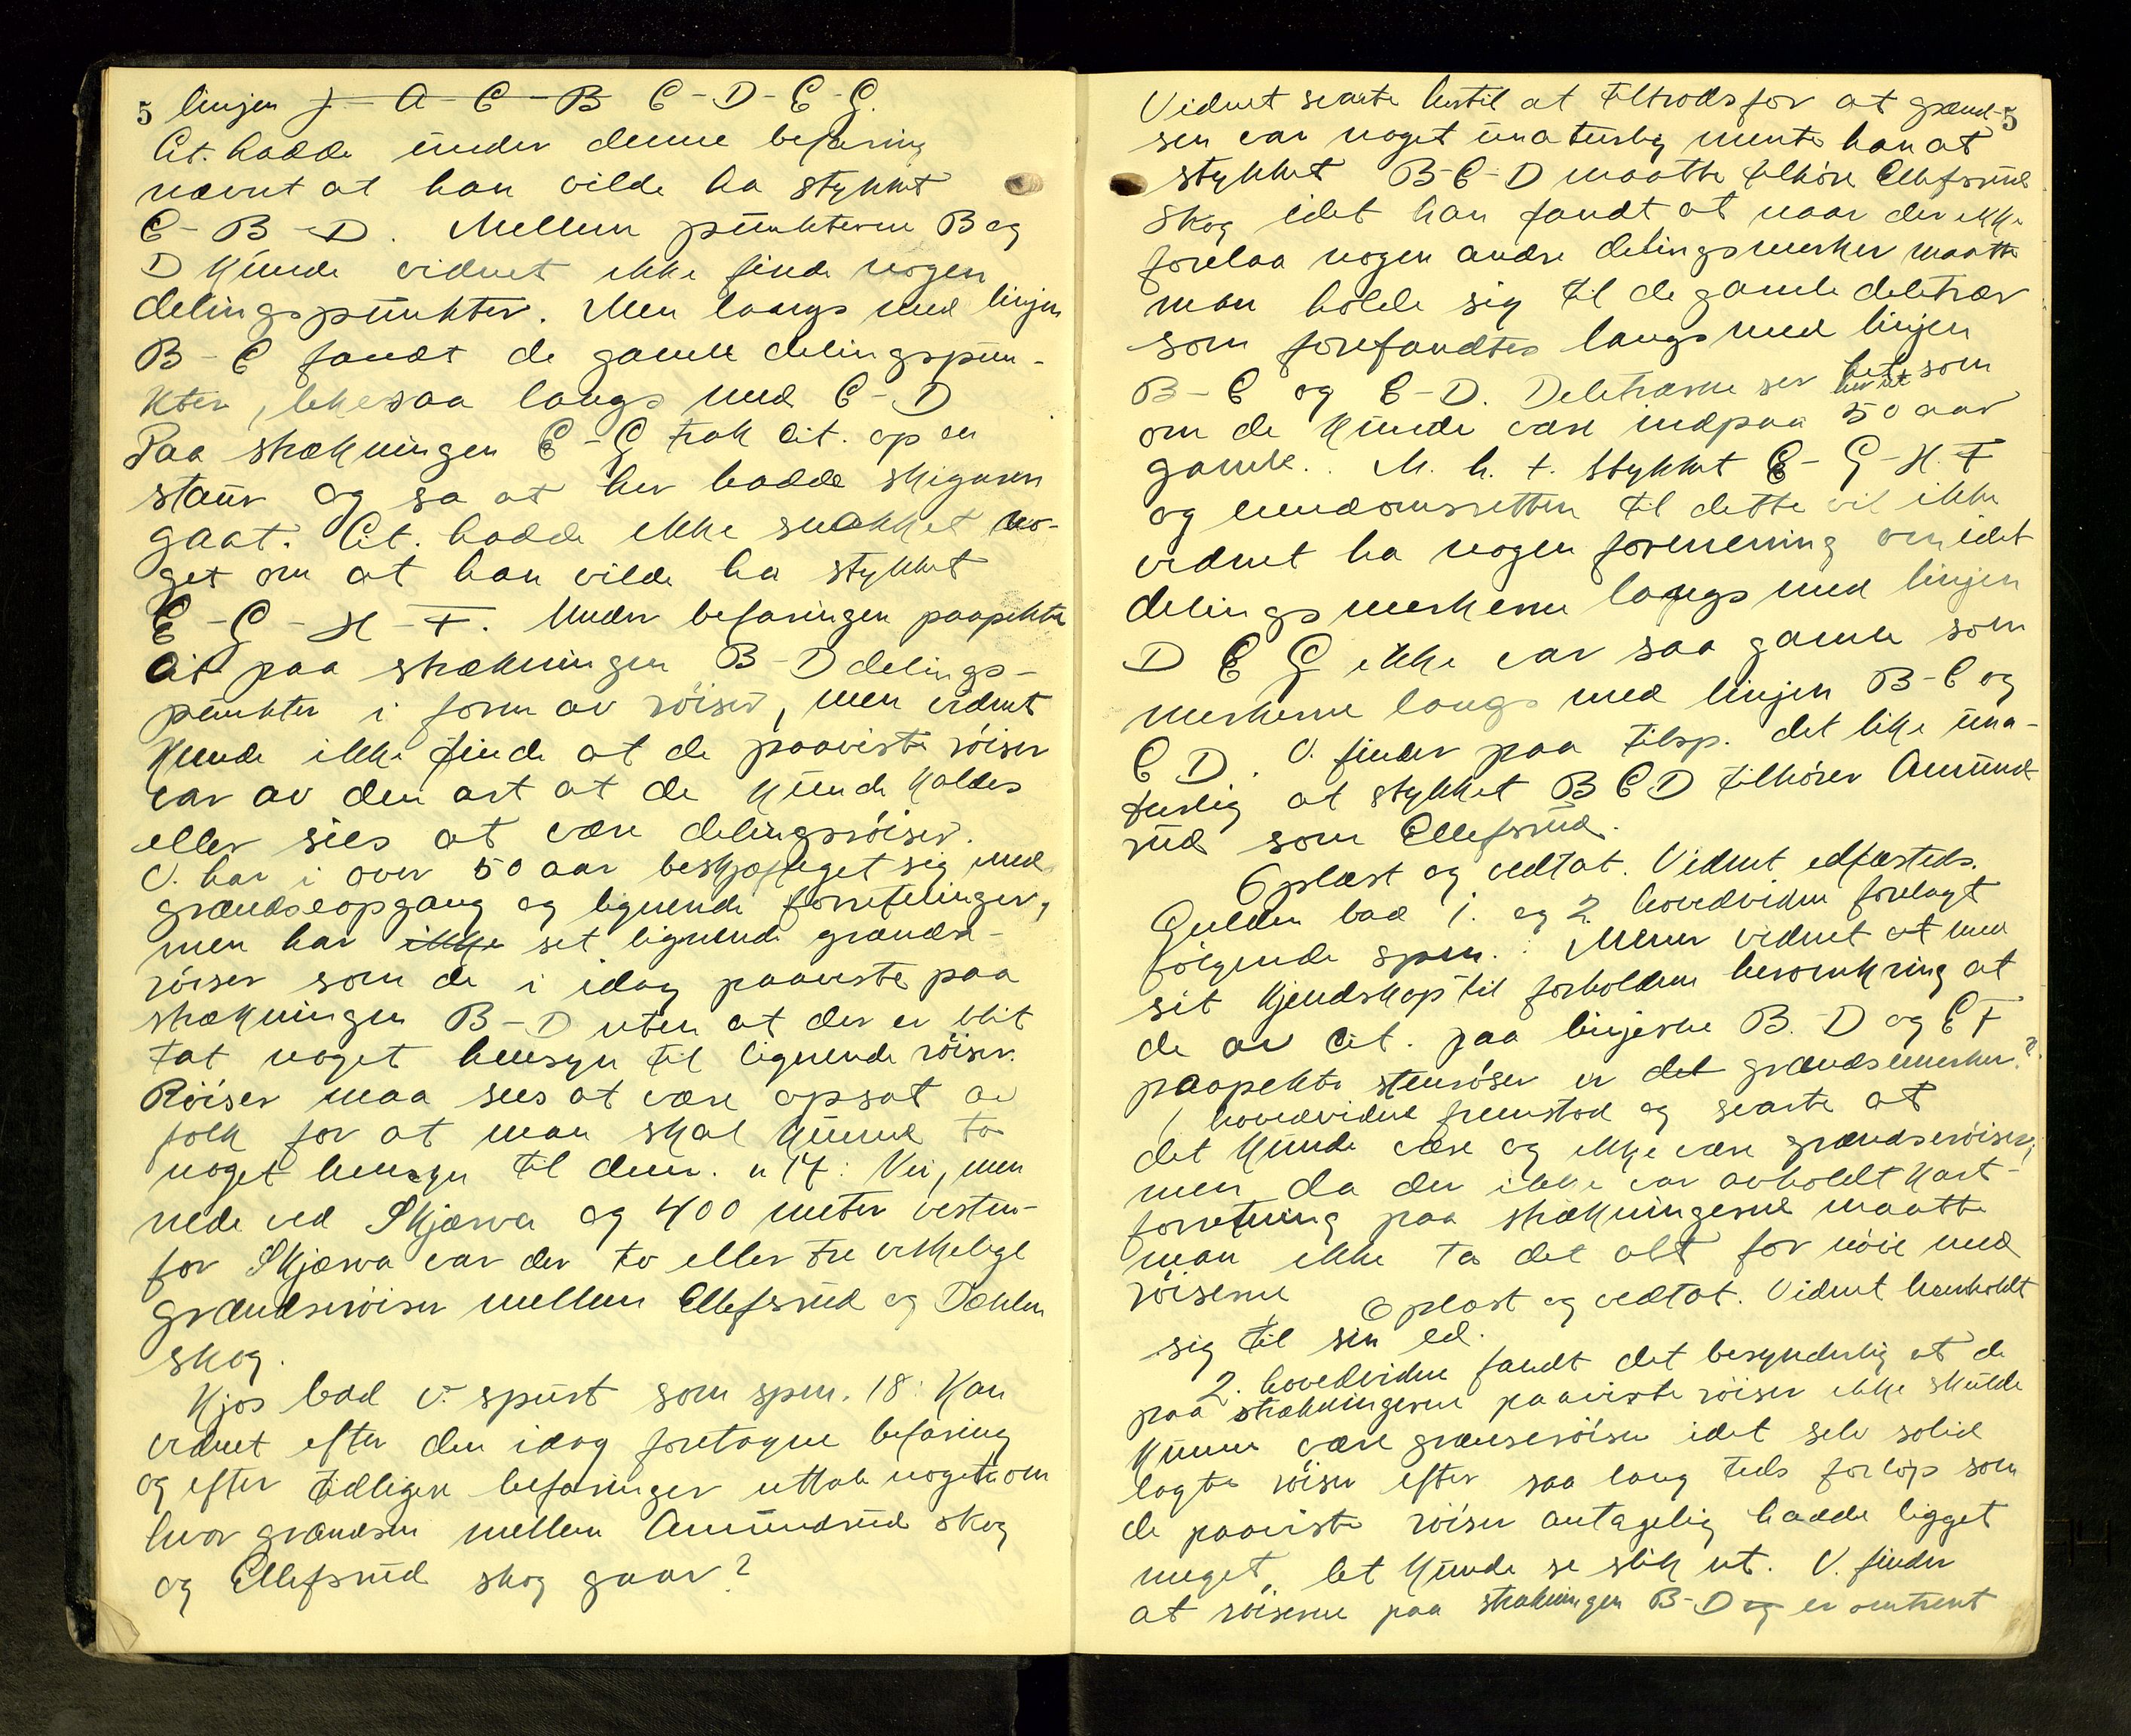 5 linjen J - A - C - B C - D - E - G.
Cit. hadde under denne befaring
nævnt at han vilde ha stykket
C - B - D. Mellem punkterne B og
D kunde vidnet ikke finde nogen
delingspunkter. Men langs med linjen
B - C fandt de gamle delingspun-
kter, likesaa langs med C - D
Paa strækningen E - G trak Cit. op en
staur og sa at her hadde skigaren
gaat. Cit. hadde ikke snakket no-
get om at han vilde ha stykket
E - G - H - F. Under befaringen paapekte
Cit paa strækningen B - D delings-
punkter i form av röiser, men vidnet
kunde ikke finde at de paaviste röiser
var av den art at de kunde kaldes
eller sies at være delingsröiser.
V. har i over 50 aar beskjæftiget sig med
grændseopgang og lignende forretninger,
men har ikke set lignende grændse-
röiser som de i idag paaviste paa
strækningen B - D uten at der er blit
tat noget hensyn til lignende röiser.
Röiser maa sees at være opsat av
folk for at man skal kunne ta
noget hensyn til dem. " 17: Nei, men
nede ved Skjærva og 400 meter vesten-
for Skjærva var der to eller tre virkelige
grændseröiser mellem Ellefsrud og Dæhlen
skog.
Kjos bad v. spurt som spm. 18: Kan
vidnet efter den idag foretagne befaring
og efter tidligere befaringer uttale noget om
hvor grændsen mellem Amundrud skog
og Ellefsrud skog gaar?
Vidnet svarte hertil at tiltrods for at grænd- 5
sen var noget unaturlig mente han at
stykket B-C-D maatte tilhöre Ellefsrud
skog idet han fandt at naar der ikke
forelaa nogen andre delingsmerker maatte
man holde sig til de gamle deletrær
som forefandtes langs med linjen
B - C og C - D. Deletrærne ser helt som
om de kunde være indpaa 50 aar
gamle. M. h. t. stykket E - G - H. F
og eiendomsretten til dette vil ikke
vidnet ha nogen formening om idet
delingsmerkerne langs med linjen
D E G ikke var saa gamle som
merkerne langs med linjen B - C og
C D. V. finder paa tilsp. det like una-
turlig at stykket B C D tilhörer Amund-
rud som Ellefsrud.
Oplæst og vedtat. Vidnet edfæstedes.
Gulden bad 1. og 2. hovedvidne forelagt
fölgende spm.: Mener vidnet at med
sit kjendskap til forholdene heromkring at
de av Cit. paa linjerne B. - D og E F
paapekte stenröser er det grændsemerker?
1 hovedvidne fremstod og svarte at
det kunde være og ikke være grændseröiser,
men da der ikke var avholdt kart-
forretning paa strækningerne maatte
man ikke ta det alt for nöie med
röiserne Oplæst og vedtat. Vidnet henholdt
sig til sin ed.
2. hovedvidne fandt det besynderlig at de
paa strækningerne paaviste röiser ikke skulde
kunne være grænseröiser idet selv solid
lagte röiser efter saa lang tids forlöp som
de paaviste röiser antagelig hadde ligget
meget let kunde se slik ut. V. finder
at röiserne paa strækningen B - D og er omtrent